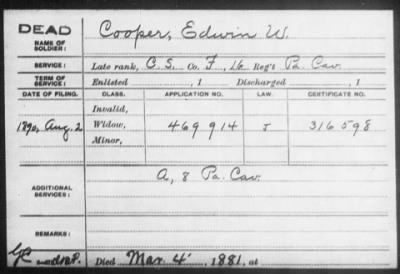 DEAD
NAME OF SOLDIER: Cooper, Edwin W.
SERVICE: Late rank, C. S. Co. F, 16 Reg't Pa. Cav.
TERM OF SERVICE: Enlisted , 1 Discharged , 1
DATE OF FILING. CLASS. APPLICATION NO. LAW. CERTIFICATE NO.
Invalid,
1890, Aug. 2 Widow, 469 914 J 316 598
Minor,
ADDITIONAL SERVICES: A, 8 Pa. Cav.
REMARKS:
Died Mar. 4 1881, at